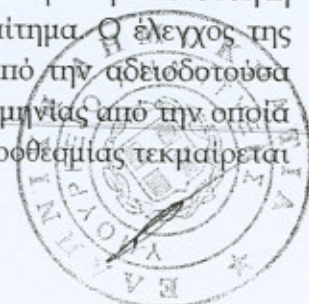 πίτημα. Ο έλεγχος της
πό την αδειοδοτούσα
μηνίας από την οποία
ροθεσμίας τεκμαίρεται